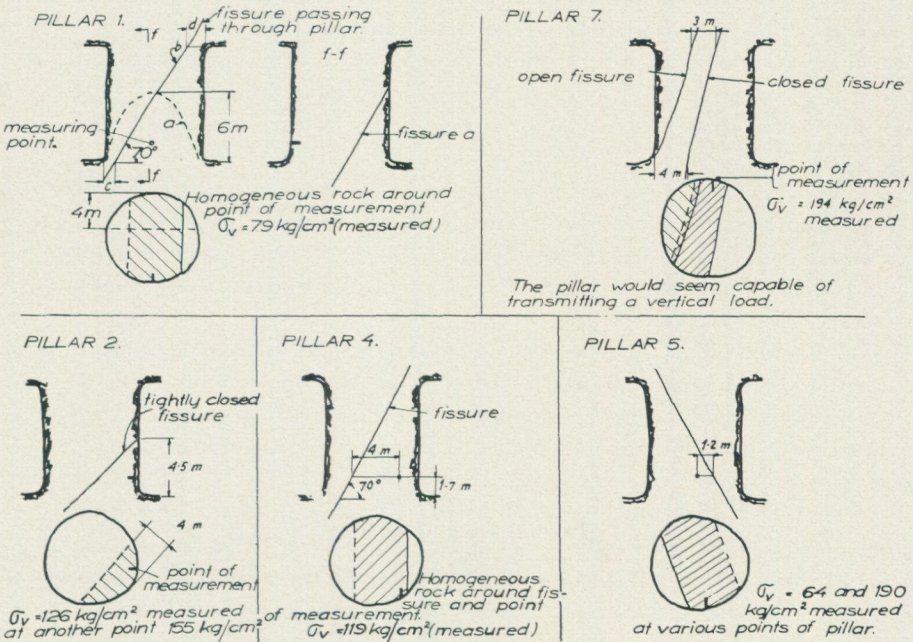 PILLAR 1.
fissure passing
through pillar.
d
f
b
f-f
a
6m
measuring
point.
70°
fissure a
c
f
4m
Homogeneous rock around
point of measurement
σv = 79 kg/cm² (measured)
PILLAR 7.
3 m
open fissure
closed fissure
4 m
point of
measurement
σv = 194 kg/cm²
measured
The pillar would seem capable of
transmitting a vertical load.
PILLAR 2.
tightly closed
fissure
4·5 m
4 m
point of
measurement
σv = 126 kg/cm² measured
at another point 155 kg/cm²
PILLAR 4.
fissure
4 m
70°
1·7 m
Homogeneous
rock around fis-
sure and point
of measurement.
σv = 119 kg/cm² (measured)
PILLAR 5.
1·2 m
σv = 64 and 190
kg/cm² measured
at various points of pillar.